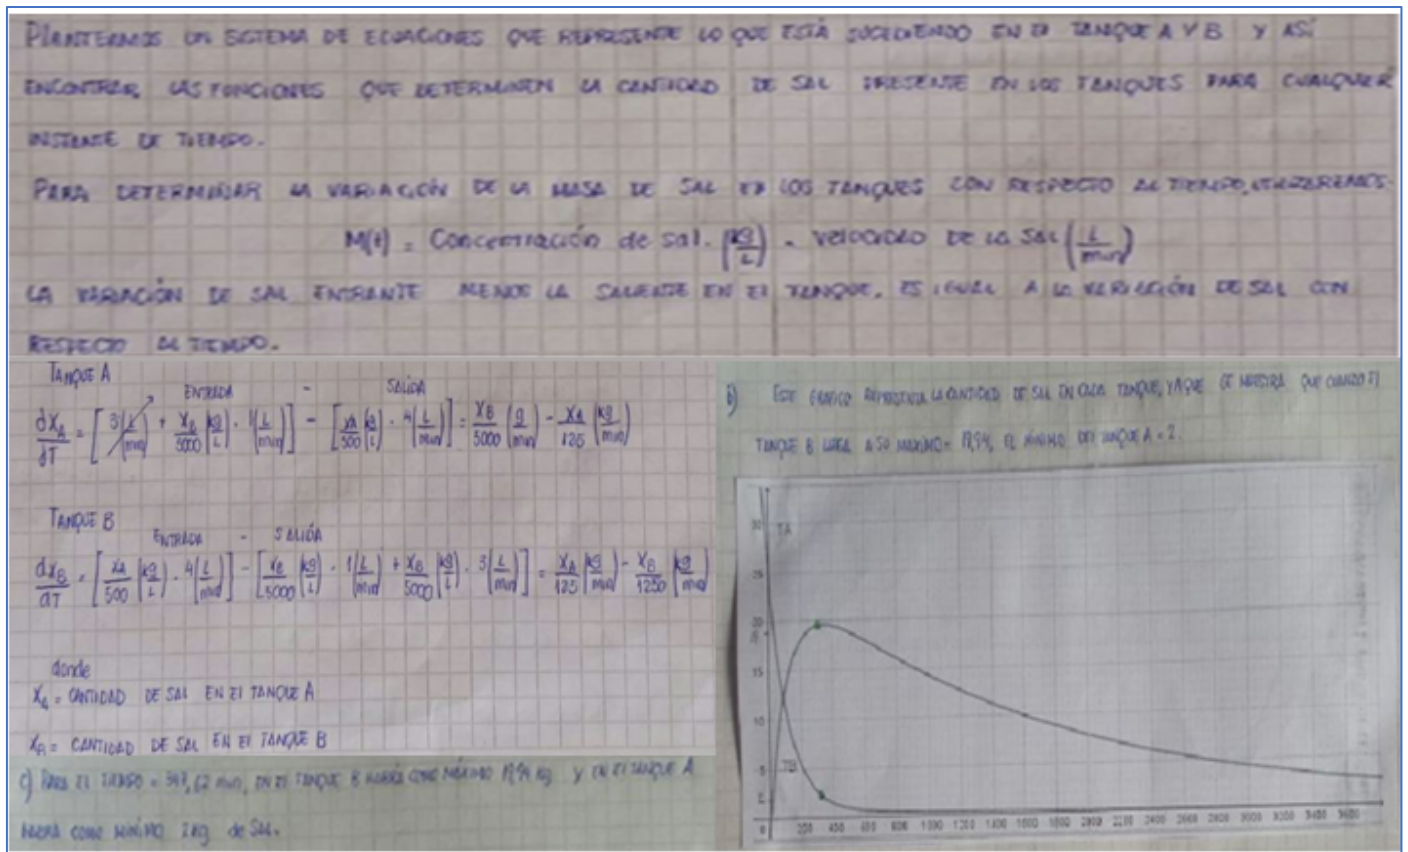 PLANTEAMOS UN SISTEMA DE ECUACIONES QUE REPRESENTE LO QUE ESTÁ SUCEDIENDO EN EL TANQUE A Y B Y ASÍ
ENCONTRAR LAS FUNCIONES QUE DETERMINEN LA CANTIDAD DE SAL PRESENTE EN LOS TANQUES PARA CUALQUIER
INSTANTE DE TIEMPO.
PARA DETERMINAR LA VARIACIÓN DE LA MASA DE SAL EN LOS TANQUES CON RESPECTO AL TIEMPO, UTILIZAREMOS.
M(t) = Concentración de sal. (kg/L) - VELOCIDAD DE LA SAL (L/min)
LA VARIACIÓN DE SAL ENTRANTE MENOS LA SALIENTE EN EL TANQUE, ES IGUAL A LA VARIACIÓN DE SAL CON
RESPECTO AL TIEMPO.
TANQUE A
ENTRADA - SALIDA
dX_A/dT = [3(L/min) + X_B/5000 (kg/L) . 1(L/min)] - [X_A/500 (kg/L) . 4(L/min)] = X_B/5000 (g/min) - X_A/125 (kg/min)
TANQUE B
ENTRADA - SALIDA
dX_B/dT = [X_A/500 (kg/L) . 4(L/min)] - [X_B/5000 (kg/L) . 1(L/min) + X_B/5000 (kg/L) . 3(L/min)] = X_A/125 (kg/min) - X_B/1250 (kg/min)
donde
X_A = CANTIDAD DE SAL EN EL TANQUE A
X_B = CANTIDAD DE SAL EN EL TANQUE B
c) PARA EL TIEMPO = 347,62 min, EN EL TANQUE B HABRÁ COMO MÁXIMO 19,94 kg Y EN EL TANQUE A
HABRÁ COMO MÍNIMO 2kg de SAL.
b) ESTE GRAFICO REPRESENTA LA CANTIDAD DE SAL EN CADA TANQUE, YA QUE SE MUESTRA QUE CUANDO EL
TANQUE B LLEGA A SU MAXIMO = 19,94, EL MÍNIMO DEL TANQUE A = 2.
TA
30
25
20
15
10
5
TB
0
200 400 600 800 1000 1200 1400 1600 1800 2000 2200 2400 2600 2800 3000 3200 3400 3600